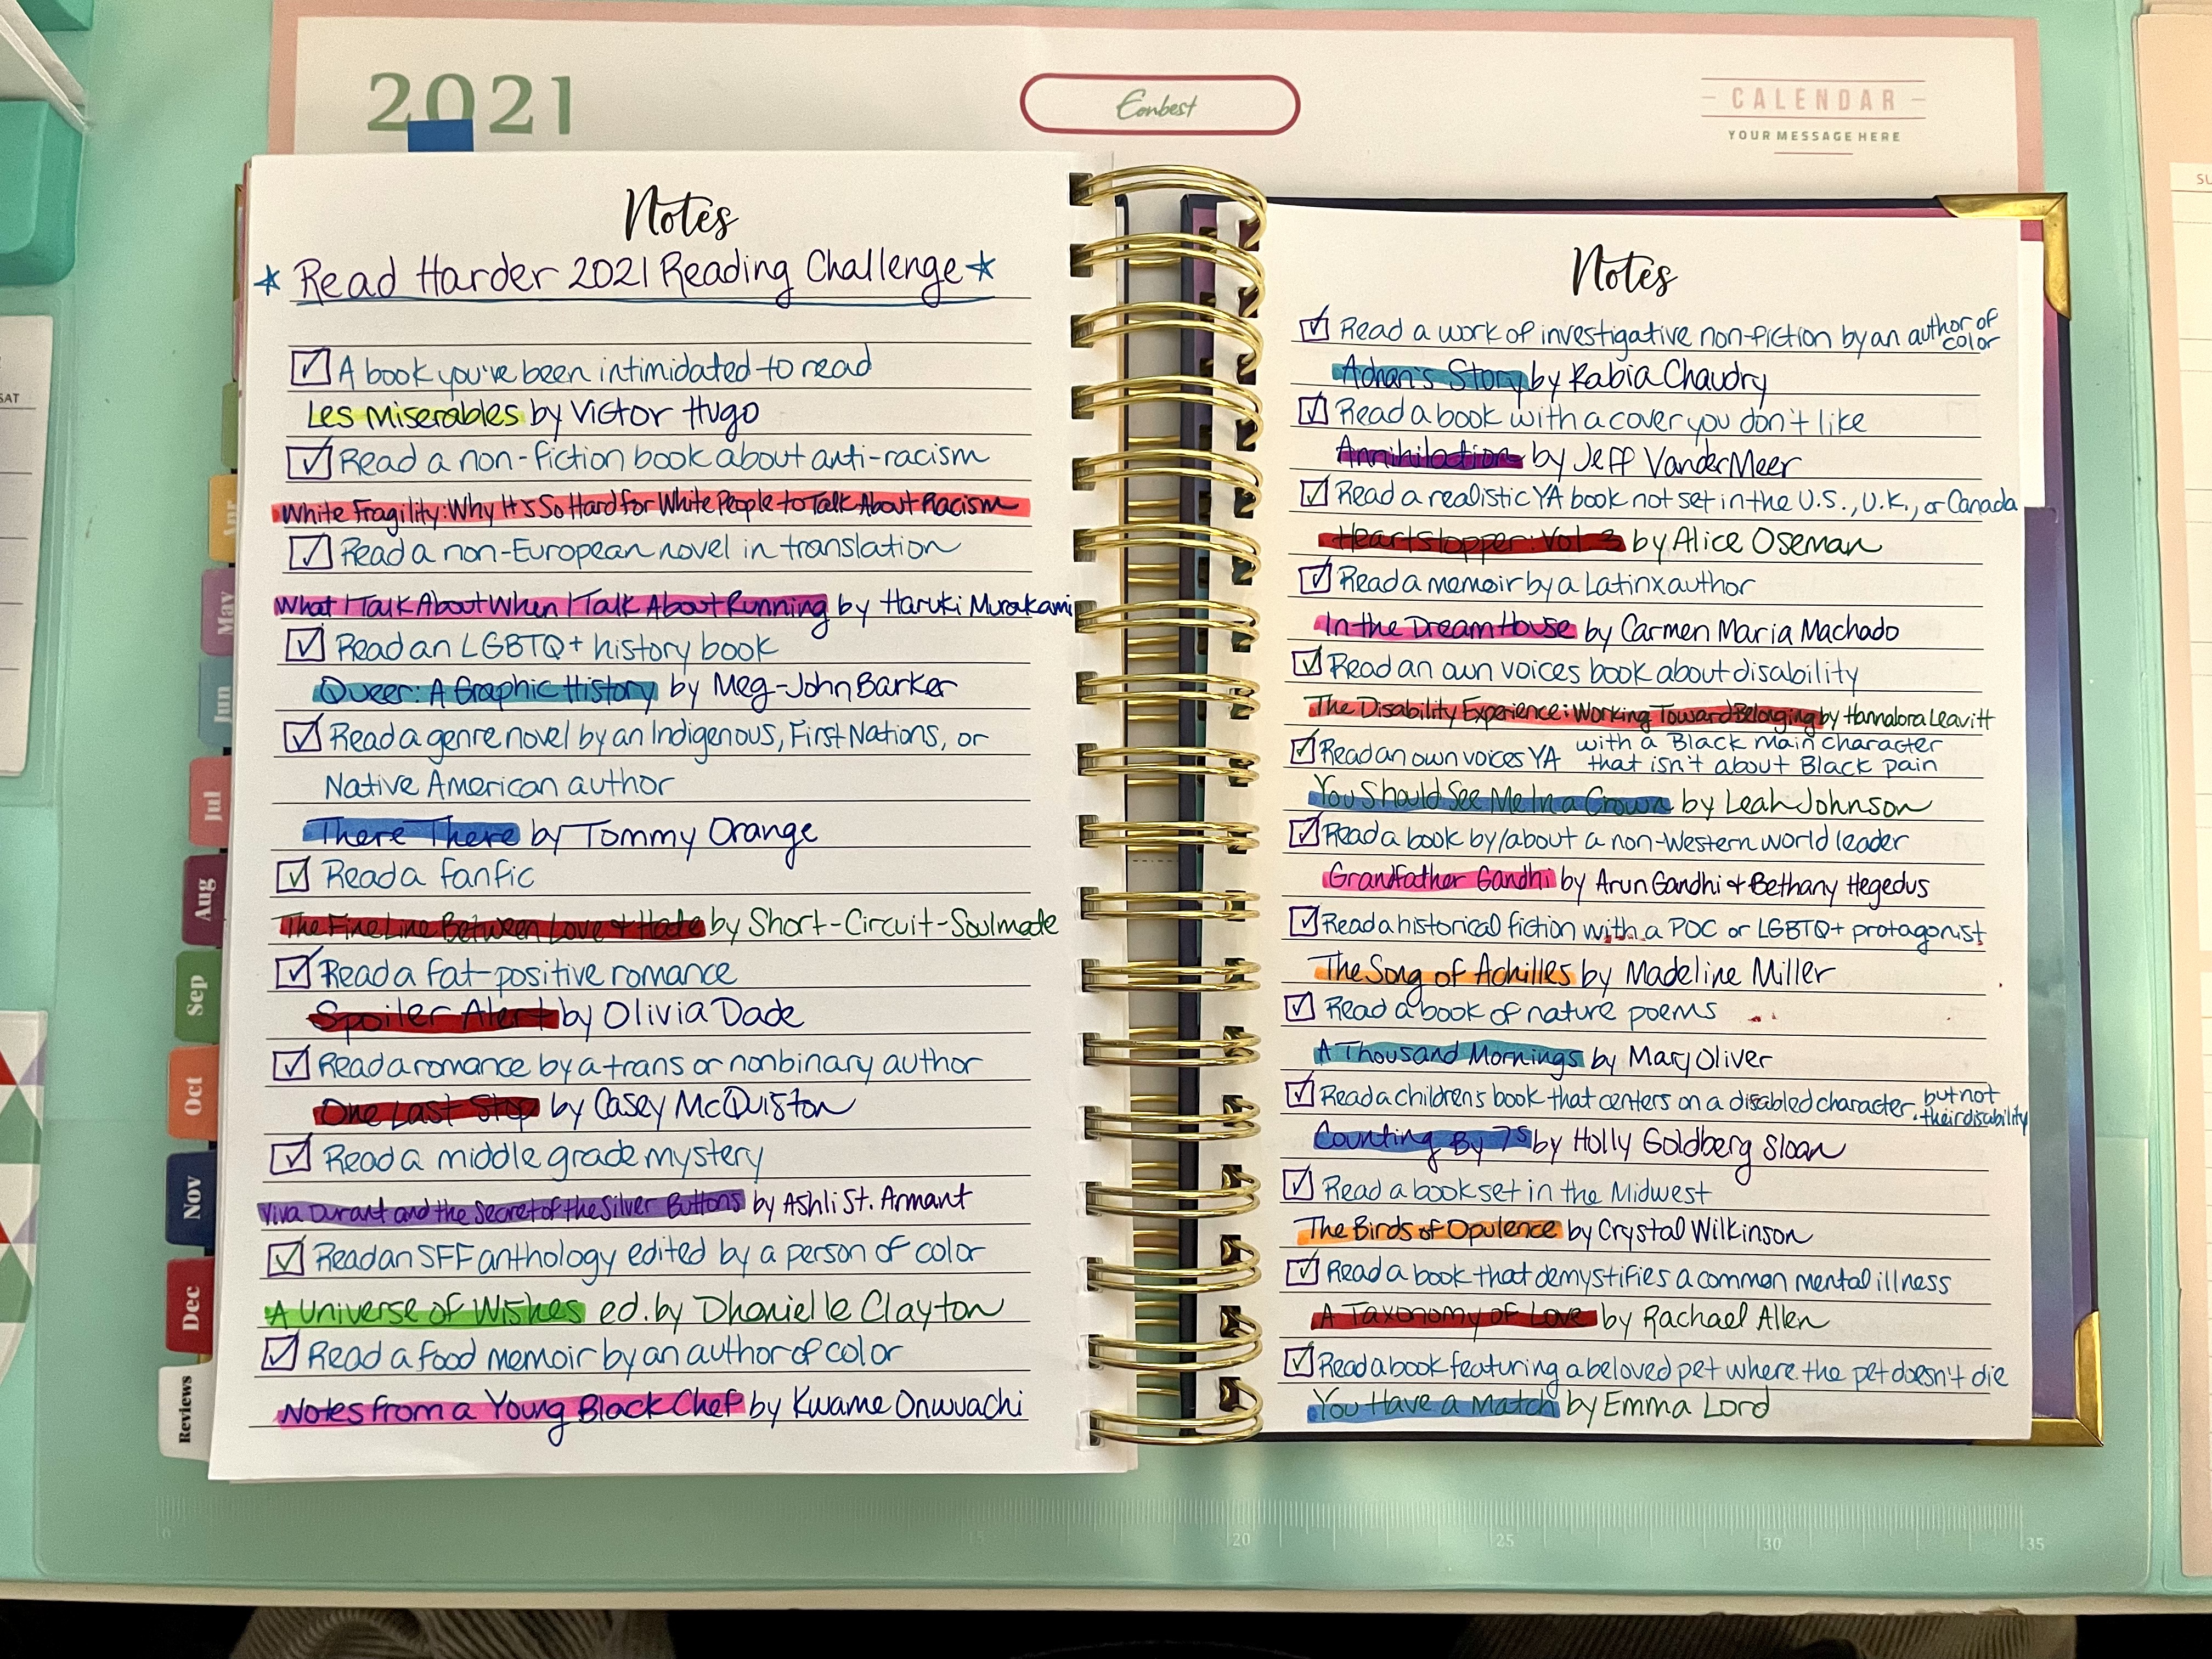 2021
Eonbest
CALENDAR
YOUR MESSAGE HERE
SAT
Apr
May
Jun
Jul
Aug
Sep
Oct
Nov
Dec
Reviews
Notes
Read Harder 2021 Reading Challenge
A book you've been intimidated to read
Les Miserables by Victor Hugo
Read a non-fiction book about anti-racism
White Fragility: Why It's So Hard for White People to Talk About Racism
Read a non-European novel in translation
What I Talk About When I Talk About Running by Haruki Murakami
Read an LGBTQ+ history book
Queer: A Graphic History by Meg-John Barker
Read a genre novel by an Indigenous, First Nations, or
Native American author
There There by Tommy Orange
Read a fanfic
The Fine Line Between Love + Hate by Short-Circuit-Soulmate
Read a fat-positive romance
Spoiler Alert by Olivia Dade
Read a romance by a trans or nonbinary author
One Last Stop by Casey McQuiston
Read a middle grade mystery
Viva Durant and the Secret of the Silver Buttons by Ashli St. Armant
Read an SFF anthology edited by a person of color
A Universe of Wishes ed. by Dhonielle Clayton
Read a food memoir by an author of color
Notes from a Young Black Chef by Kwame Onwuachi
Notes
Read a work of investigative non-fiction by an author of color
Adnan's Story by Rabia Chaudry
Read a book with a cover you don't like
Annihilation by Jeff VanderMeer
Read a realistic YA book not set in the U.S., U.K., or Canada
Heartstopper: Vol 3 by Alice Oseman
Read a memoir by a Latinx author
In the Dream House by Carmen Maria Machado
Read an own voices book about disability
The Disability Experience: Working Toward Belonging by Hannalora Leavitt
Read an own voices YA with a Black main character
that isn't about Black pain
You Should See Me In a Crown by Leah Johnson
Read a book by/about a non-Western world leader
Grandfather Gandhi by Arun Gandhi + Bethany Hegedus
Read a historical fiction with a POC or LGBTQ+ protagonist
The Song of Achilles by Madeline Miller
Read a book of nature poems
A Thousand Mornings by Mary Oliver
Read a children's book that centers on a disabled character but not
their disability
Counting By 7s by Holly Goldberg Sloan
Read a book set in the Midwest
The Birds of Opulence by Crystal Wilkinson
Read a book that demystifies a common mental illness
A Taxonomy of Love by Rachael Allen
Read a book featuring a beloved pet where the pet doesn't die
You Have a Match by Emma Lord
0 15 20 25 30 35